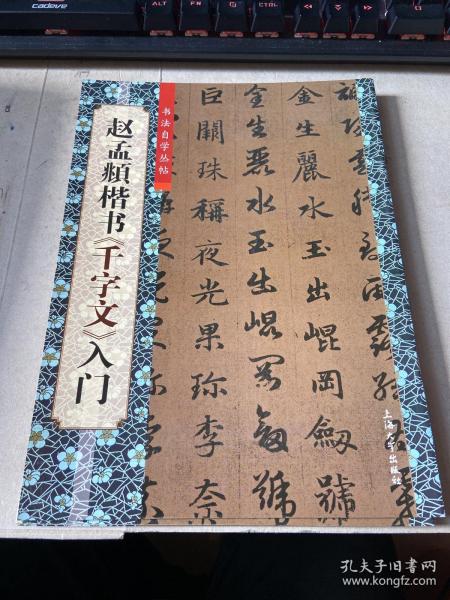 cadeve
CTRL
赵孟頫楷书《千字文》入门
书法自学丛帖
金生麗水玉出崐岡劔號
金生麗水玉出崐岡劔號
巨闕珠稱夜光果珍李奈
上海大学出版社
孔夫子旧书网
www.kongfz.com